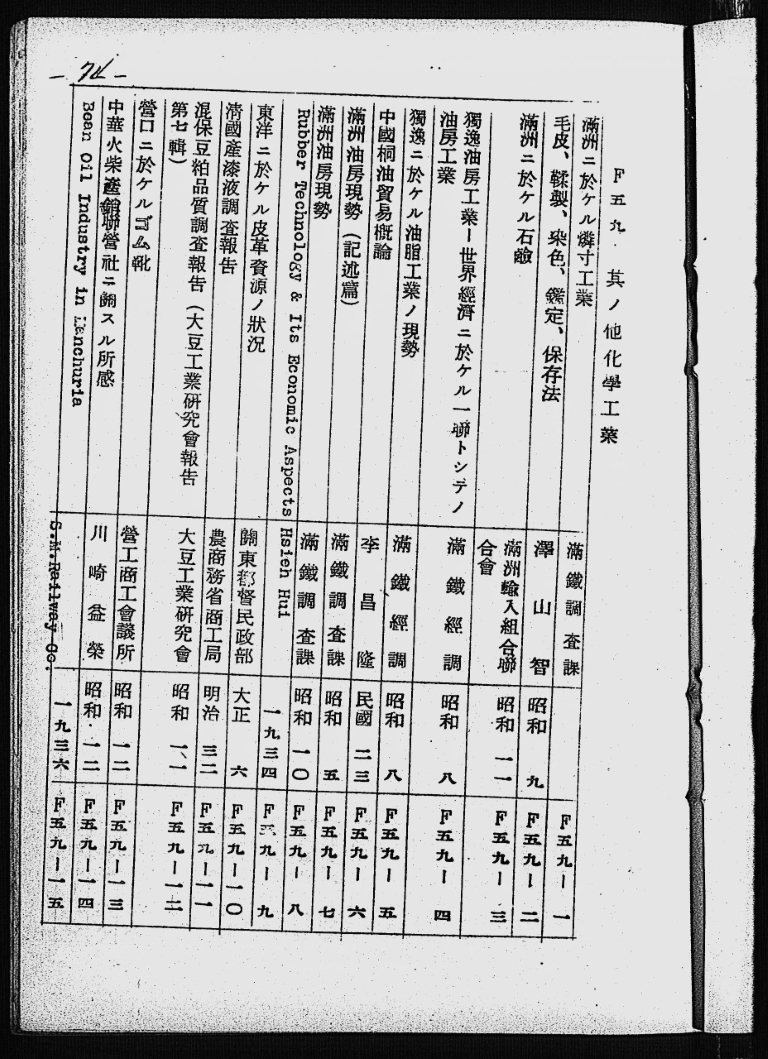 — 74 —
F五九 其ノ他化學工業
滿洲ニ於ケル燐寸工業 滿鐵調查課 F五九ー一
毛皮、鞣製、染色、鑑定、保存法 澤山智 昭和 九 F五九ー二
滿洲ニ於ケル石鹼 滿洲輸入組合聯合會 昭和 一一 F五九ー三
獨逸油房工業ー世界經濟ニ於ケル一聯トシテノ
油房工業 滿鐵經調 昭和 八 F五九ー四
獨逸ニ於ケル油脂工業ノ現勢 滿鐵經調 昭和 八 F五九ー五
中國桐油貿易槪論 李昌隆 民國 二三 F五九ー六
滿洲油房現勢(記述篇) 滿鐵調查課 昭和 五 F五九ー七
滿洲油房現勢 滿鐵調查課 昭和 一〇 F五九ー八
Rubber Technology & Its Economic Aspects Hsieh Hui 一九三四 F五九ー九
東洋ニ於ケル皮革資源ノ狀況 關東都督民政部 大正 六 F五九ー一〇
淸國產漆液調查報吿 農商務省商工局 明治 三二 F五九ー一一
混保豆粕品質調查報吿(大豆工業硏究會報吿
第七輯) 大豆工業硏究會 昭和 一一 F五九ー一二
營口ニ於ケルゴム靴 營工商工會議所 昭和 一二 F五九ー一三
中華火柴產銷聯營社ニ關スル所感 川崎益榮 昭和 一二 F五九ー一四
Bean Oil Industry in Manchuria S.M.Railway Co. 一九三六 F五九ー一五